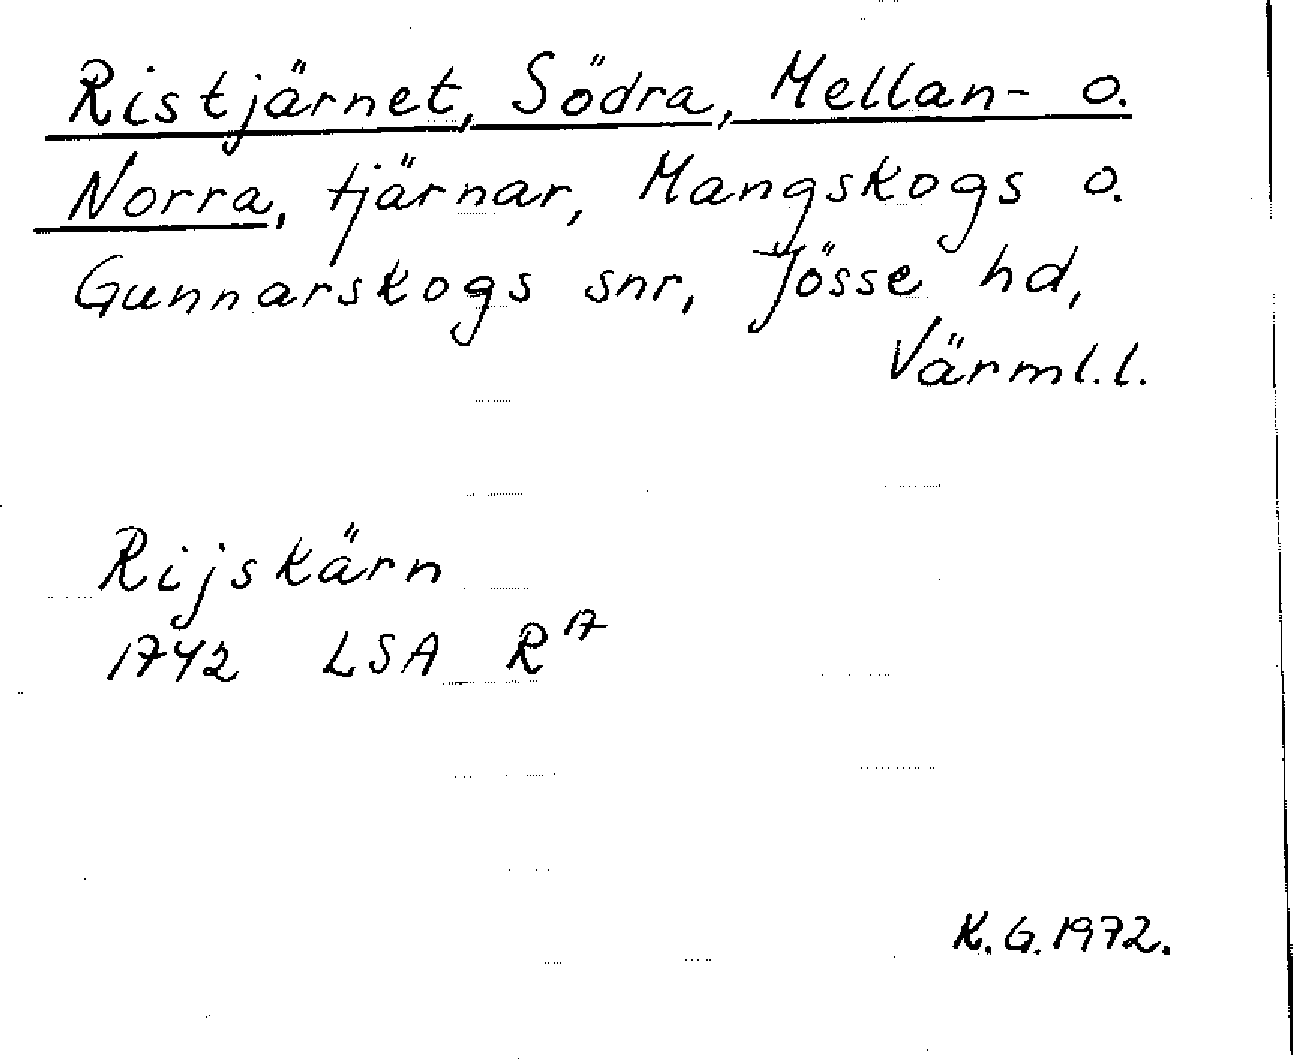 Ristjärnet, Södra, Mellan- o.
Norra, tjärnar, Mangskogs o.
Gunnarskogs snr, Jösse hd,
Värml.l.
Rijskärn
1742 LSA R17
K.G.1972.